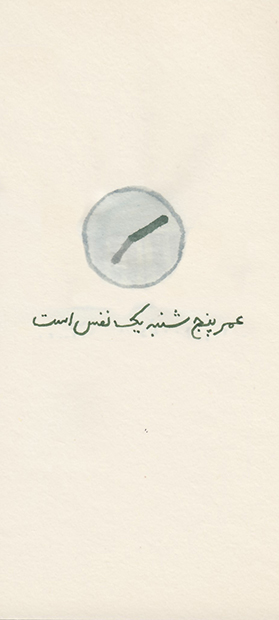 عمر پنج شنبه یک نفس است